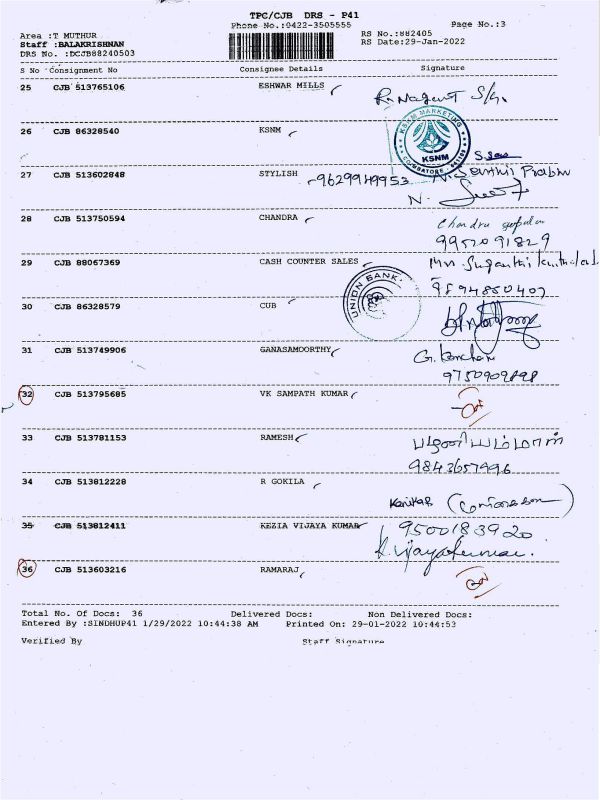 TPC/CJB DRS - P41
Phone No.:0422-3505555
Page No.:3
Area :T MUTHUR
RS No.:882405
Staff :BALAKRISHNAN
RS Date:29-Jan-2022
DRS No. :DCJB88240503
S No Consignment No Consignee Details Signature
25 CJB 513765106 ESHWAR MILLS
26 CJB 86328540 KSNM
KSNM MARKETING
KSNM
COIMBATORE
27 CJB 513602848 STYLISH 9629949953 N. Senthil Prabhu
28 CJB 513750594 CHANDRA
9952091829
29 CJB 88067369 CASH COUNTER SALES
9894850407
30 CJB 86328579 CUB
UNION BANK
31 CJB 513749906 GANASAMOORTHY
9750909898
32 CJB 513795685 VK SAMPATH KUMAR
33 CJB 513781153 RAMESH பழனியம்மாள்
9843657996
34 CJB 513812228 R GOKILA
35 CJB 513812411 KEZIA VIJAYA KUMAR 9500183920
K. Vijayakumar.
36 CJB 513603216 RAMARAJ
Total No. Of Docs: 36 Delivered Docs: Non Delivered Docs:
Entered By :SINDHUP41 1/29/2022 10:44:38 AM Printed On: 29-01-2022 10:44:53
Verified By Staff Signature